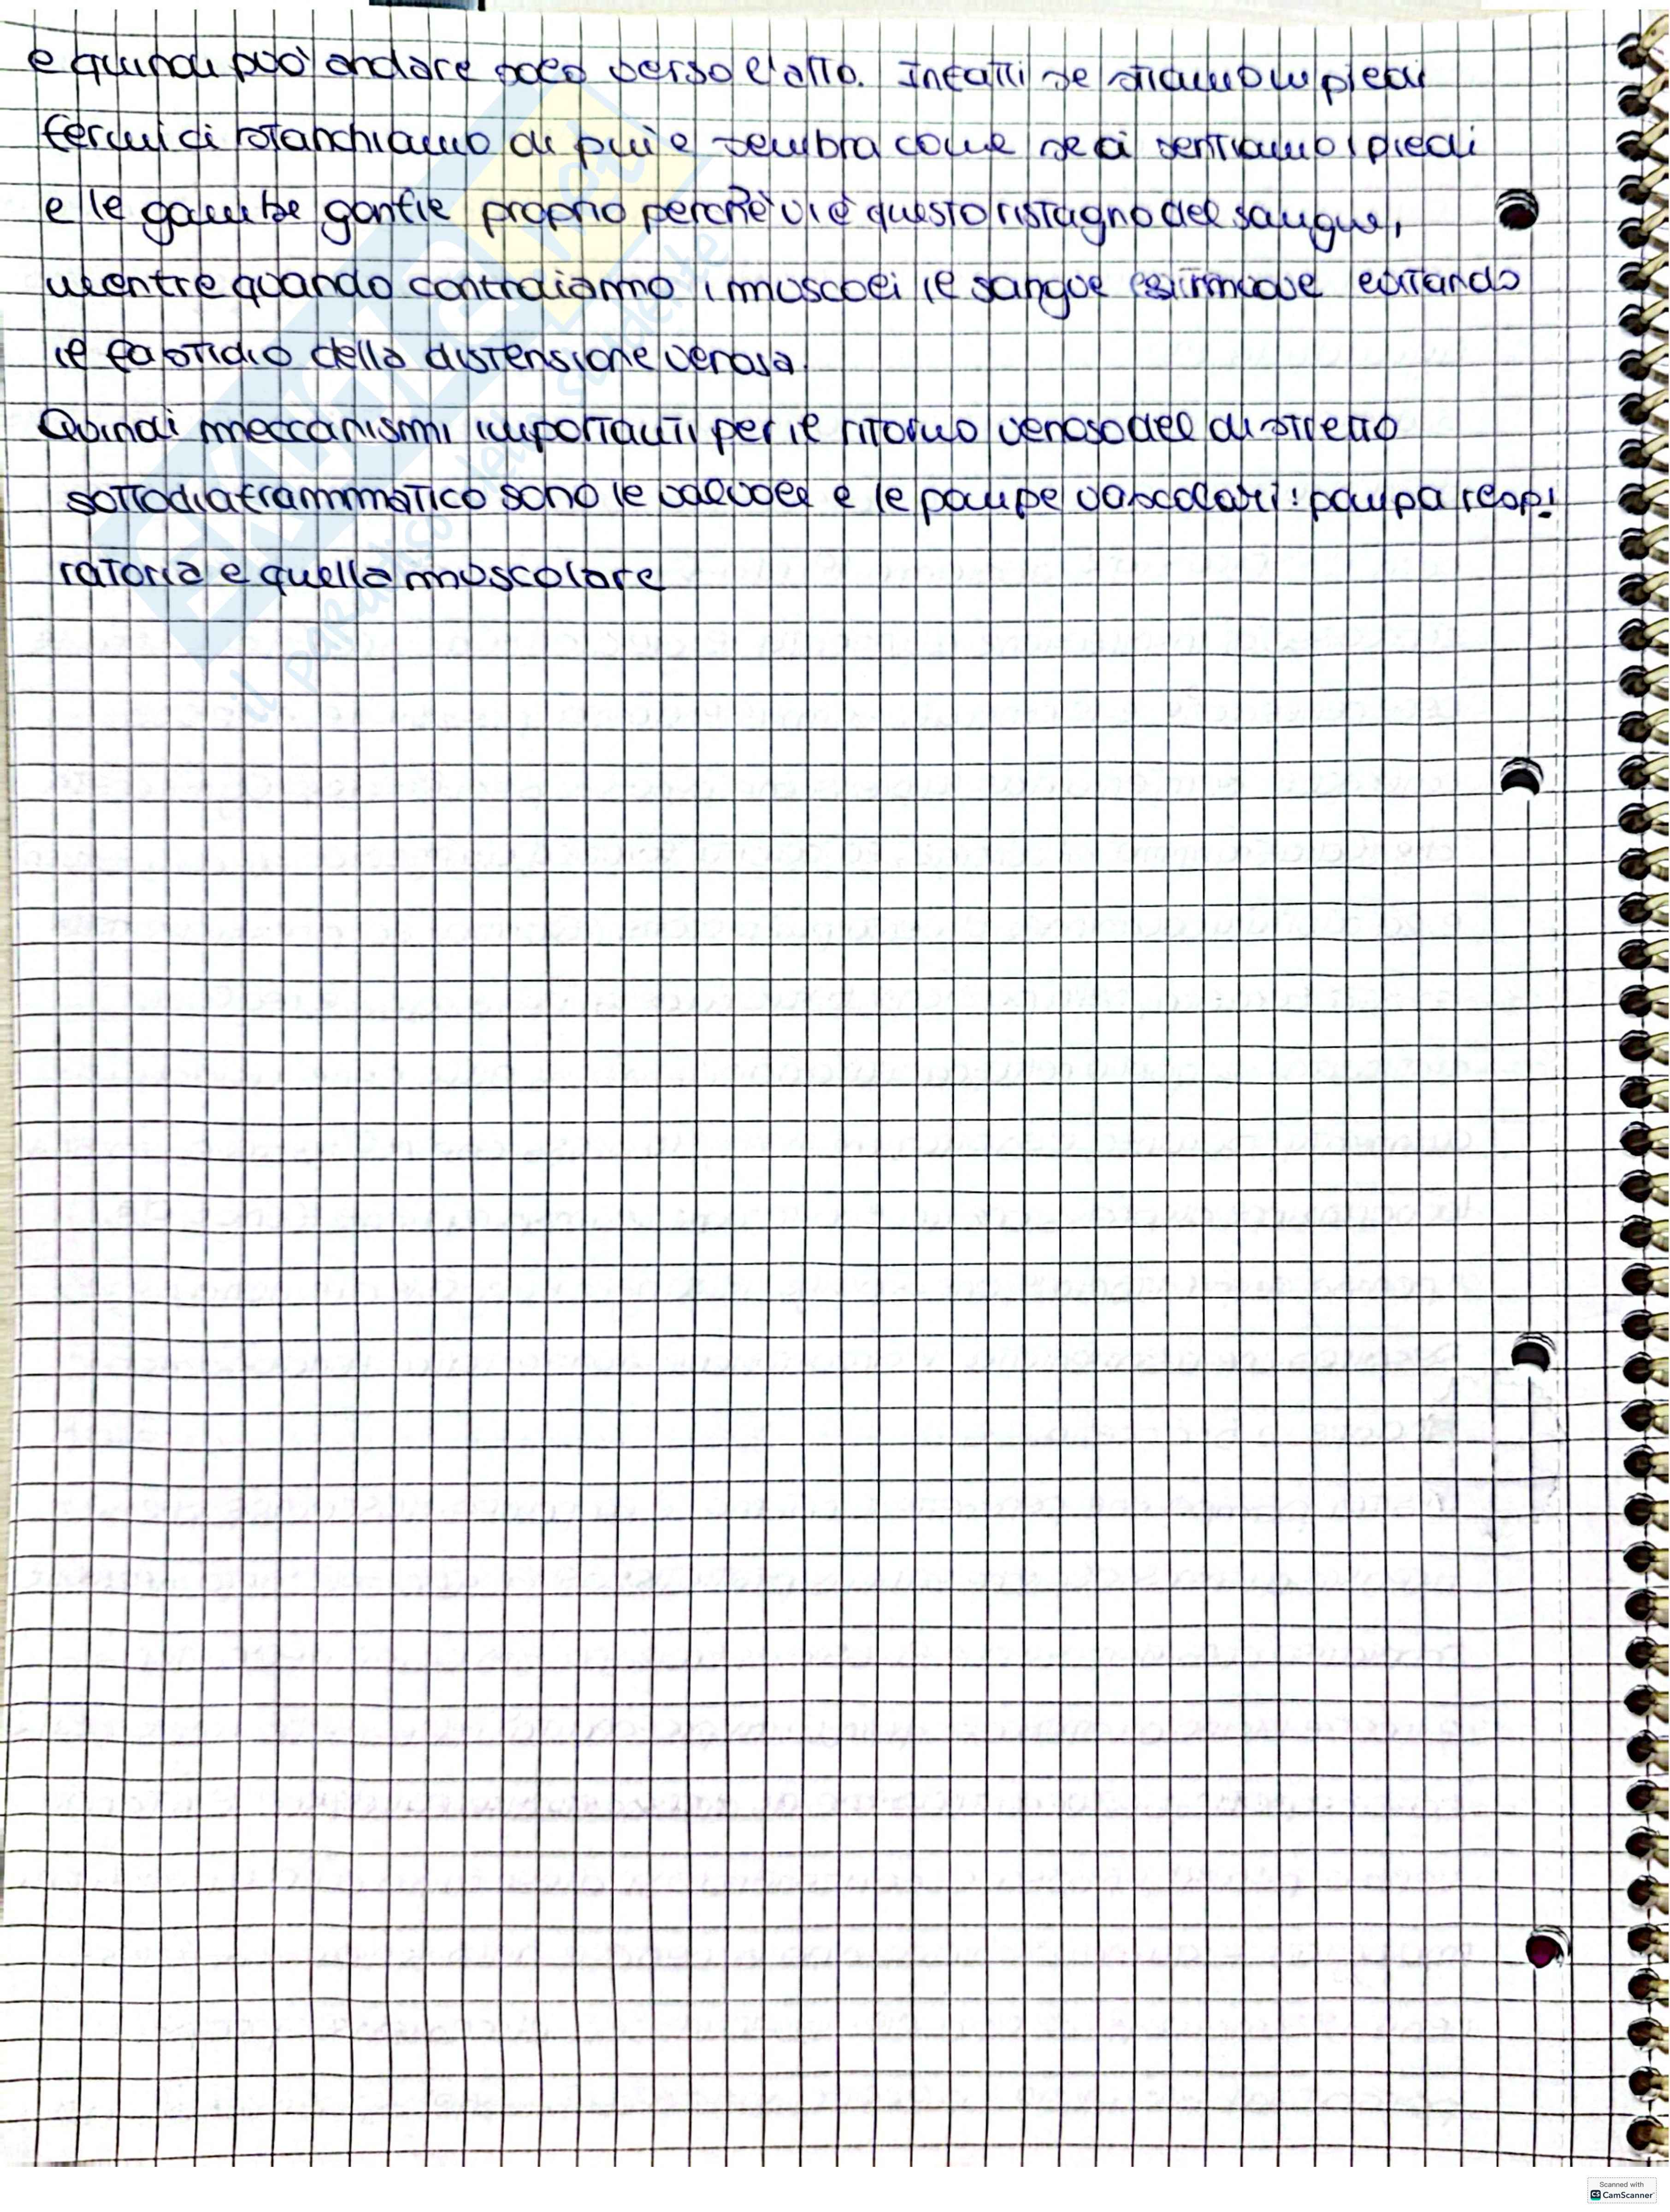 e quindi può andare poco verso l'alto. Infatti se stiamo in piedi
fermi ci stanchiamo di più e sembra come se ci sentiamo i piedi
e le gambe gonfie proprio perchè vi è questo ristagno del sangue,
mentre quando contraiamo i muscoli il sangue si muove evitando
il fastidio della distensione venosa.
Quindi meccanismi importanti per il ritorno venoso del distretto
sottodiaframmatico sono le valvole e le pompe vascolari: pompa respi
ratoria e quella muscolare
SKUOLA.net
il paradiso dello studente
Scanned with
CS CamScanner